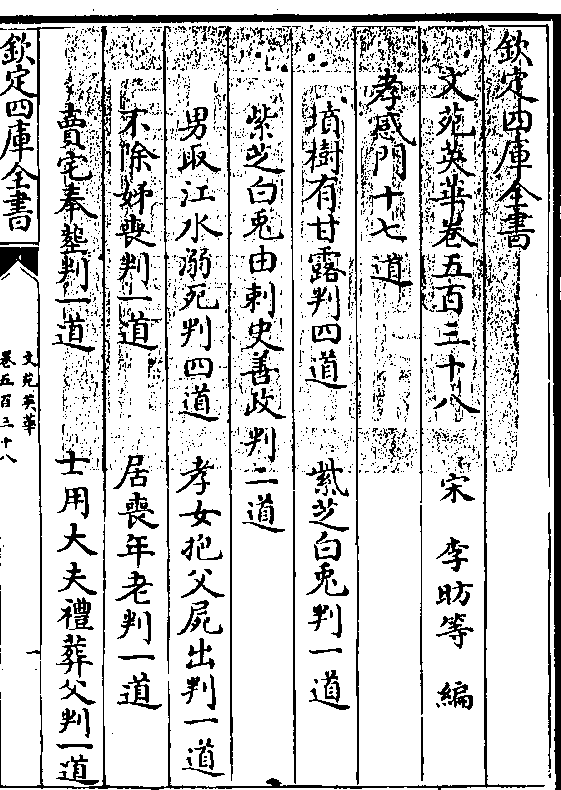 欽定四庫全書
文苑英華卷五百三十八 宋 李昉等 編
孝感門十七道
墳樹有甘露判四道 紫芝白兎判一道
紫芝白兎由刺史善政判二道
男取江水溺死判四道 孝女抱父屍出判一道
不除姊喪判一道 居喪年老判一道
賣宅奉塟判一道 士用大夫禮葬父判一道
欽定四庫全書
文苑英華
卷五百三十八
一